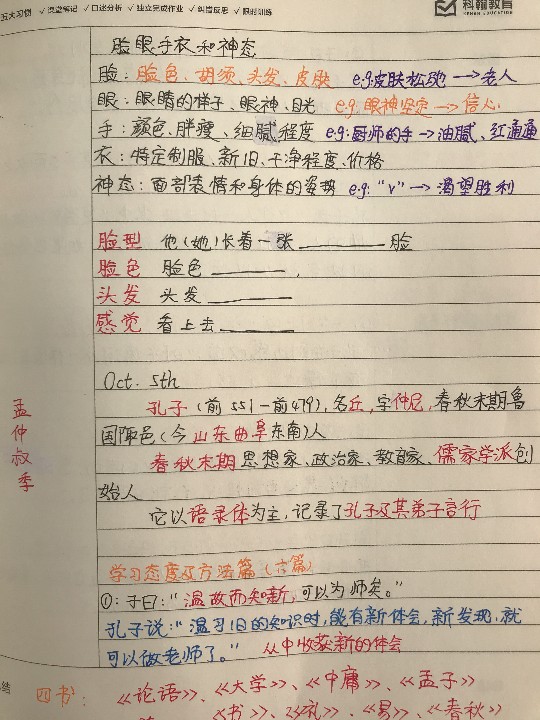 五大习惯 ✓课堂笔记 ✓口述分析 ✓独立完成作业 ✓纠错反思 ✓限时训练
科翰教育
KEHAN EDUCATION
脸眼手衣和神态
脸：脸色、胡须、头发、皮肤 e.g:皮肤松弛→老人
眼：眼睛的样子、眼神、目光 e.g:眼神坚定→信心
手：颜色、胖瘦、细腻程度 e.g:厨师的手→油腻、红通通
衣：特定制服、新旧、干净程度、价格
神态：面部表情和身体的姿势 e.g:“v”→渴望胜利
脸型 他(她)长着一张________脸
脸色 脸色________，
头发 头发________
感觉 看上去________
Oct. 5th
孔子（前551-前479），名丘，字仲尼，春秋末期鲁
国陬邑（今山东曲阜东南）人
春秋末期思想家、政治家、教育家、儒家学派创
始人
它以语录体为主，记录了孔子及其弟子言行
孟仲叔季
学习态度及方法篇（六篇）
①：子曰：“温故而知新，可以为师矣。”
孔子说：“温习旧的知识时，能有新体会，新发现，就
可以做老师了。” 从中收获新的体会
结
四书：《论语》、《大学》、《中庸》、《孟子》
《书》、《礼》、《易》、《春秋》